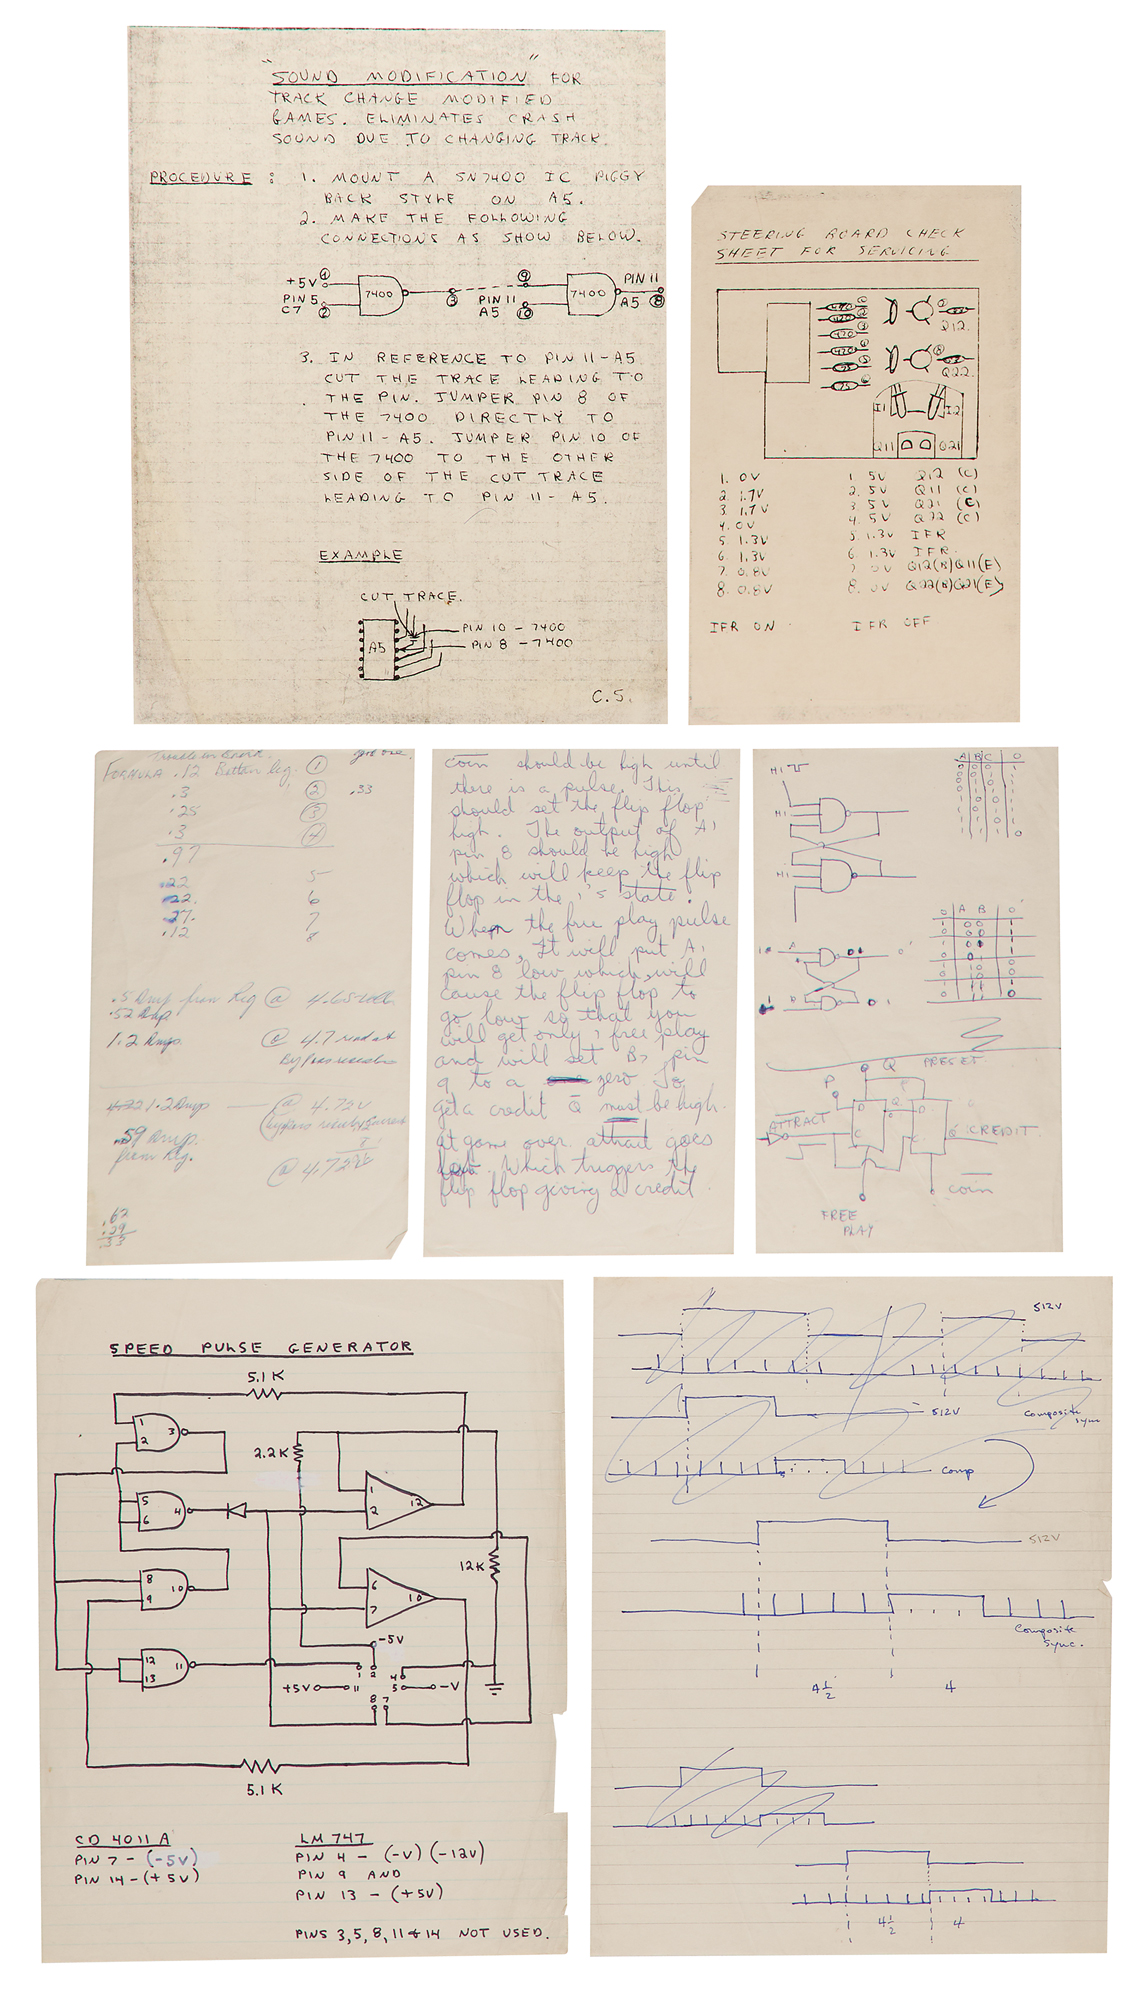 "SOUND MODIFICATION" FOR
TRACK CHANGE MODIFIED
GAMES. ELIMINATES CRASH
SOUND DUE TO CHANGING TRACK.
PROCEDURE : 1. MOUNT A SN7400 IC PIGGY
BACK STYLE ON A5.
2. MAKE THE FOLLOWING
CONNECTIONS AS SHOW BELOW.
+5V 1 9 PIN 11
7400 7400
PIN 5 3 PIN 11 A5 8
C7 2 A5 10
3. IN REFERENCE TO PIN 11-A5
CUT THE TRACE LEADING TO
THE PIN. JUMPER PIN 8 OF
THE 7400 DIRECTLY TO
PIN 11 - A5. JUMPER PIN 10 OF
THE 7400 TO THE OTHER
SIDE OF THE CUT TRACE
LEADING TO PIN 11 - A5.
EXAMPLE
CUT TRACE.
PIN 10 - 7400
A5 PIN 8 - 7400
C.S.
STEERING BOARD CHECK
SHEET FOR SERVICING
Q12.
Q22.
I1 I2
Q11 Q21
1. 0V 1. 5V Q12 (C)
2. 1.7V 2. 5V Q11 (C)
3. 1.7V 3. 5V Q21 (C)
4. 0V 4. 5V Q22 (C)
5. 1.3V 5. 1.3V IFR
6. 1.3V 6. 1.3V IFR.
7. 0.8V 7. 0V Q12(B)Q11(E)
8. 0.8V 8. 0V Q22(B)Q21(E)
IFR ON IFR OFF
FORMULA .12 Bottom Reg. 1
.3 2 .33
.25 3
.3 4
.97
.22 5
.22 6
.27. 7
.12 8
.5 Amp from Reg @ 4.65 volts
.52 Amp
1.2 Amps. @ 4.7
1.2 Amps @ 4.75V
.59 Amp.
from Reg. @ 4.75
.62
.29
.33
coin should be high until
there is a pulse. This
should set the flip flop
high. The output of A1
pin 8 should be high
which will keep the flip
flop in the 1's state.
When the free play pulse
comes, It will put A1
pin 8 low which will
cause the flip flop to
go low so that you
will get only 1 free play
and will set B7 pin
9 to a zero. To
get a credit Q̅ must be high.
at game over. attract goes
low. Which triggers the
flip flop giving a credit.
HI
HI
HI
A B C 0
0 A B 0'
P Q PRESET
ATTRACT
CREDIT
coin
FREE
PLAY
SPEED PULSE GENERATOR
5.1 K
1 2 3
2.2K
5 6 4
1 2 12
12K
8 9 10
6 7 10
12 13 11
-5V
1 2 4
+5V 11 5 -V
8 7
5.1 K
CD 4011 A
PIN 7 - (-5V)
PIN 14 - (+5V)
LM 747
PIN 4 - (-V) (-12V)
PIN 9 AND
PIN 13 - (+5V)
PINS 3, 5, 8, 11 & 14 NOT USED.
512V
512V
Composite
sync
Comp
512V
Composite
Sync.
4 1/2 4
4 1/2 4